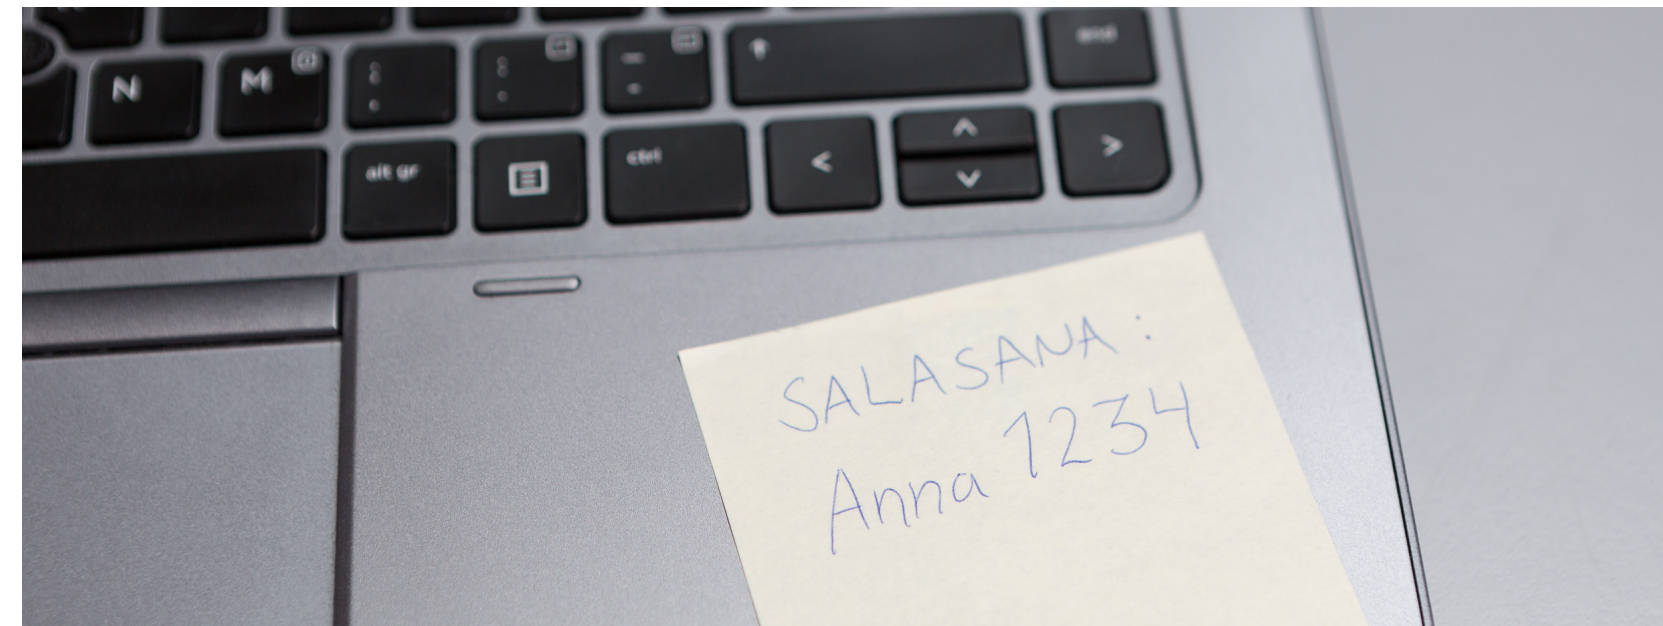 N M ; : : . — -
end
alt gr ctrl < ^ >
v
SALASANA:
Anna 1234